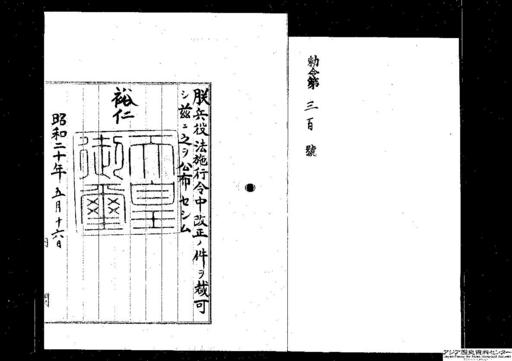 勅令第三百號
朕兵役法施行令中改正ノ件ヲ裁可
シ茲ニ之ヲ公布セシム
裕仁
天皇
御璽
昭和二十年五月十六日
アジア歴史資料センター